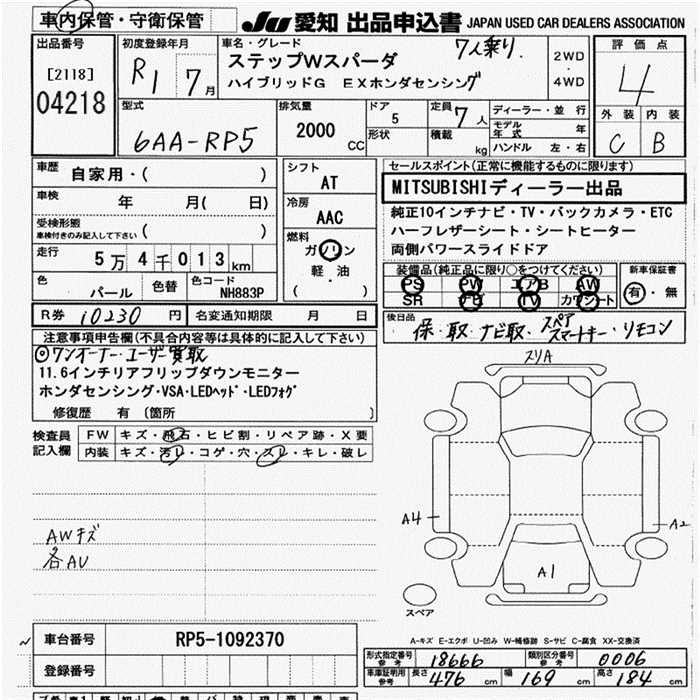 車内保管・守衛保管
JU 愛知 出品申込書 JAPAN USED CAR DEALERS ASSOCIATION
出品番号
[2118]
04218
初度登録年月
R1 7月
車名・グレード
ステップWスパーダ 7人乗り.
ハイブリッドG EXホンダセンシング
2WD
・
4WD
評価点
4
外装 内装
C B
型式
6AA-RP5
排気量
2000 CC
ドア
5
形状
定員 7人
積載 kg
ディーラー・並行
モデル年式 年
ハンドル 左・右
車歴
自家用・( )
車検
年 月( 日)
受検形態
車検付きのみ記入して下さい ( )
走行
5万4千013km
色
パール
色替
色コード
NH883P
シフト
AT
冷房
AAC
燃料
ガソリン
軽・油
( )
セールスポイント(正常に機能するものに限ります)
MITSUBISHIディーラー出品
純正10インチナビ・TV・バックカメラ・ETC
ハーフレザーシート・シートヒーター
両側パワースライドドア
装備品(純正品に限り○をつけてください)
PS PW エアB AW
SR ナビ TV カワシート
新車保証書
有・無
R券 10230 円
名変通知期限 月 日
後日品
保・取・ナビ取・スペアスマートキー・リモコン
注意事項申告欄(不具合内容等は具体的に記入して下さい)
◎ワンオーナー・ユーザー買取
11.6インチリアフリップダウンモニター
ホンダセンシング・VSA・LEDヘッド・LEDフォグ
修復歴 有 〔箇所 〕
検査員記入欄
FW キズ・飛石・ヒビ割・リペア跡・X要
内装 キズ・汚レ・コゲ・穴・スレ・キレ・破レ
AWキズ
各AU
スリA
A4
A2
A1
スペア
A-キズ E-エクボ U-凹み W-補修跡 S-サビ C-腐食 XX-交換済
車台番号
RP5-1092370
登録番号
形式指定番号 参考 18666
類別区分番号 参考 0006
車庫証明用 参考 長さ 476 cm 幅 169 cm 高さ 184 cm